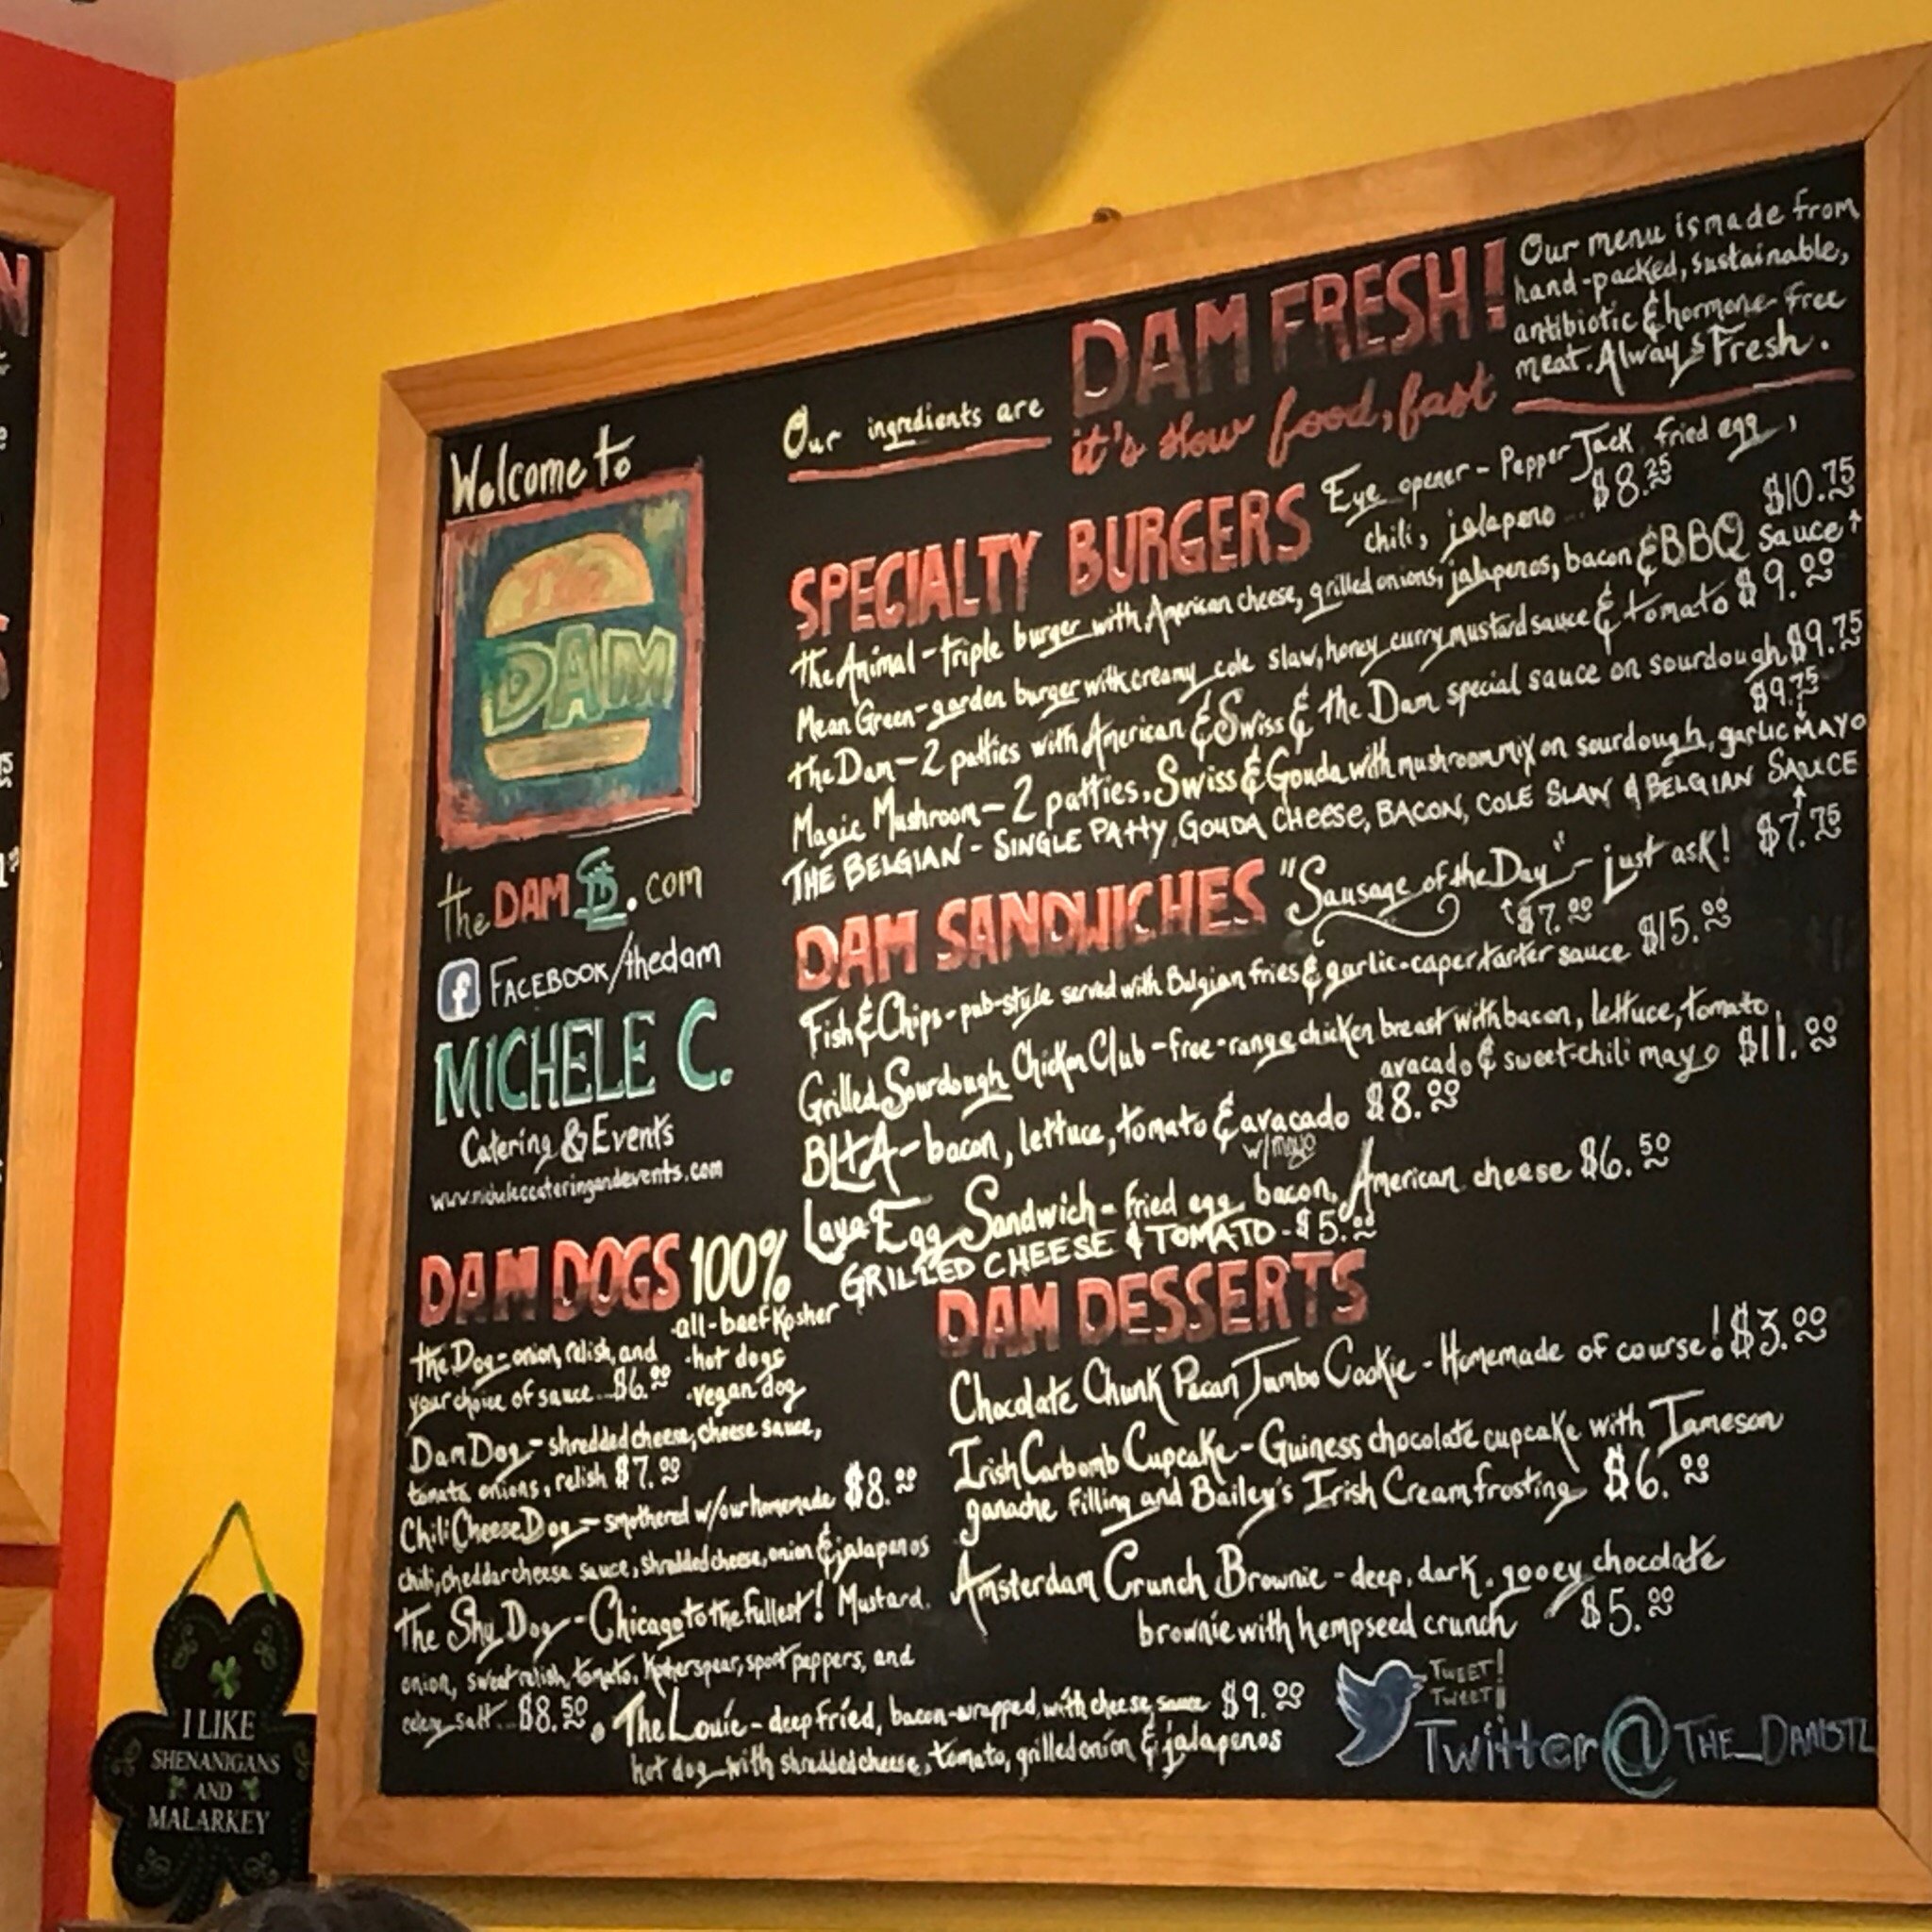 Welcome to
The
DAM
the DAM STL.com
f FACEBOOK/thedam
MICHELE C.
Catering & Events
www.micheleccateringandevents.com
Our ingredients are
DAM FRESH!
it's slow food, fast
Our menu is made from
hand-packed, sustainable,
antibiotic & hormone-free
meat. Always Fresh.
SPECIALTY BURGERS
Eye opener - Pepper Jack, fried egg,
chili, jalapeno $8.25
the Animal - triple burger with American cheese, grilled onions, jalapenos, bacon & BBQ sauce $10.75
Mean Green - garden burger with creamy cole slaw, honey curry mustard sauce & tomato $9.00
the Dam - 2 patties with American & Swiss & the Dam special sauce on sourdough $9.75
Magic Mushroom - 2 patties, Swiss & Gouda with mushroom mix on sourdough, garlic MAYO $9.75
THE BELGIAN - SINGLE PATTY, GOUDA CHEESE, BACON, COLE SLAW & BELGIAN SAUCE $7.75
DAM SANDWICHES
"Sausage of the Day" - just ask!
$7.00
Fish & Chips - pub-style served with Belgian fries & garlic-caper tarter sauce $15.00
Grilled Sourdough Chicken Club - free-range chicken breast with bacon, lettuce, tomato,
avacado & sweet-chili mayo $11.00
BLTA - bacon, lettuce, tomato & avacado $8.00
w/mayo
Laya Egg Sandwich - fried egg, bacon, American cheese $6.50
GRILLED CHEESE & TOMATO - $5.00
DAM DOGS 100%
-all-beef Kosher
-hot dogs
-vegan dog
the Dog - onion, relish, and
your choice of sauce...$6.00
Dam Dog - shredded cheese, cheese sauce,
tomato, onions, relish $7.00
Chili Cheese Dog - smothered w/our homemade $8.00
chili, cheddar cheese sauce, shredded cheese, onion & jalapenos
The Shy Dog - Chicago to the fullest! Mustard,
onion, sweet relish, tomato, Kosher spear, sport peppers, and
celery salt... $8.50
• The Louie - deep fried, bacon-wrapped, with cheese sauce $9.00
hot dog with shredded cheese, tomato, grilled onion & jalapenos
DAM DESSERTS
Chocolate Chunk Pecan Jumbo Cookie - Homemade of course! $3.00
Irish Carbomb Cupcake - Guiness chocolate cupcake with Jameson
ganache filling and Bailey's Irish Cream frosting $6.00
Amsterdam Crunch Brownie - deep, dark, gooey chocolate
brownie with hempseed crunch $5.00
TWEET!
TWEET!
Twitter @THE_DAMSTL
I LIKE
SHENANIGANS
AND
MALARKEY